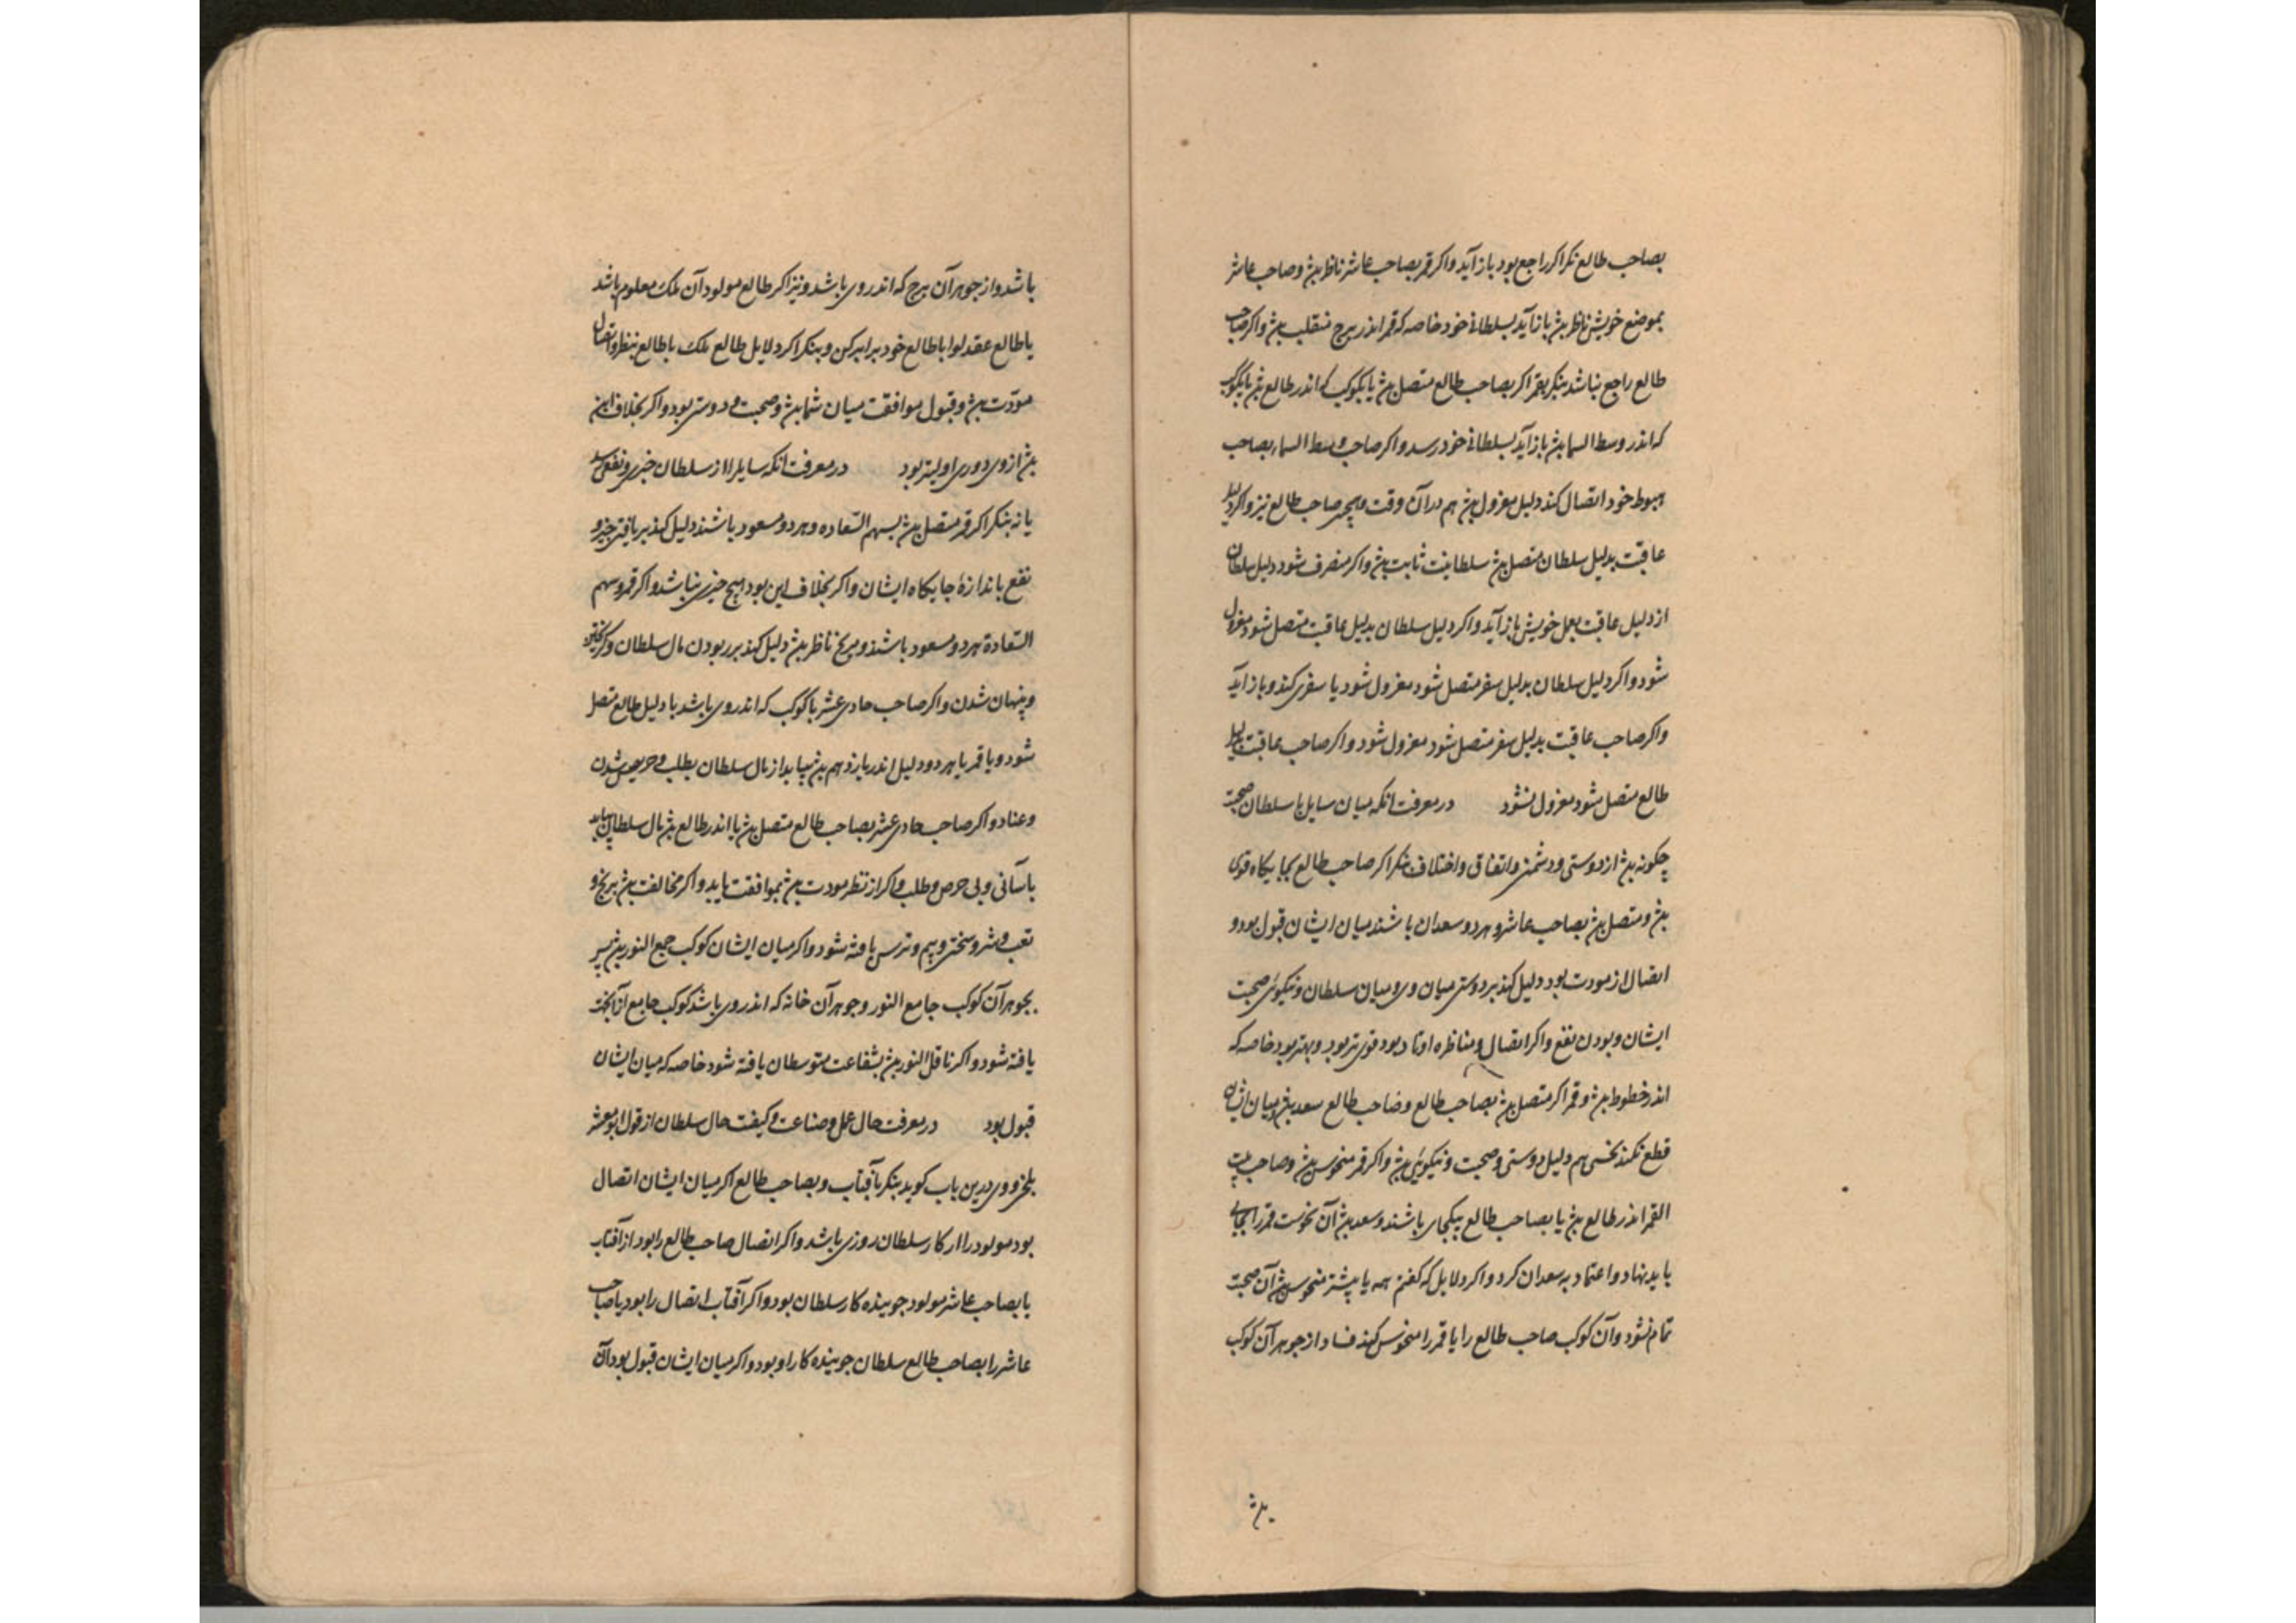 بصاحب طالع نکر اکر راجع بود باز آید واکر قمر بصاحب عاشر ناظر بشد وصاحب عاشر
بموضع خویش ناظر بشد باز آید بسلطانی خود خاصه که قمر اندر برج منقلب بشد واکر صاحب
طالع راجع نباشد بنکر بقمر اکر بصاحب طالع متصل بشد یا بکوکب که اندر طالع بشد یا بکوکب
که اندر وسط السما بشد باز آید بسلطانی خود رسد واکر صاحب وسط السما بصاحب
هبوط خود اتصال کند دلیل معزول بشد هم در آن وقت وهمچنین صاحب طالع نیز واکر دلیل
عاقبت بدلیل سلطان متصل بشد سلطانیت ثابت بشد واکر منصرف شود دلیل سلطان
از دلیل عاقبت بعمل خویش باز آید واکر دلیل سلطان بدلیل عاقبت متصل شود معزول
شود واکر دلیل سلطان بدلیل سفر متصل شود معزول شود یا سفری کند وباز آید
واکر صاحب عاقبت بدلیل سفر متصل شود معزول شود واکر صاحب عاقبت بدلیل
طالع متصل شود معزول نشود در معرفت انکه میان سایل با سلطان صحبت
چکونه بشد از دوستی ودشمنی واتفاق واختلاف بنکر اکر صاحب طالع بجایکاه قوی
بشد ومتصل بشد بصاحب عاشر وهر دو سعدان باشند میان ایشان قبول بود و
اتصال از مودت بود دلیل کند بر دوستی میان وی ومیان سلطان ونیکوئی صحبت
ایشان وبودن نفع واکر اتصال ومناظره اوتاد بود قوی تر بود وبهتر بود خاصه که
اندر خطوط بشد وقمر اکر متصل بشد بصاحب طالع وصاحب طالع سعد بشد ومیان ایشان
قطع نکند نحسی هم دلیل دوستی وصحبت ونیکوئی بشد واکر قمر منحوس بشد وصاحب بیت
القمر اندر طالع بشد یا بصاحب طالع بیکجای باشند وسعد بشد آن نحوست قمر را بجای
باید نهاد واعتماد به سعدان کرد واکر دلایل که کفتم همه یا بیشتر منحوس بشد آن صحبت
تمام نشود وآن کوکب صاحب طالع را یا قمر را منحوس کند فساد از جوهر آن کوکب
باشد واز جوهر آن برج که اندر وی باشد ونیز اکر طالع مولود آن ملک معلوم باشد
یا طالع عقد لوا با طالع خود برابر کن وبنکر اکر دلایل طالع ملک با طالع بنظر واتصال
مودت بشد وقبول موافقت میان شما بشد وصحبت ودوستی بود واکر بخلاف این
بشد از وی دوری اولیتر بود در معرفت انکه سایل را از سلطان خیری ونفعی رسد
یا نه بنکر اکر قمر متصل بشد بسهم السعاده وهر دو مسعود باشند دلیل کند بر یافتن خیر و
نفع باندازهٔ جایکاه ایشان واکر بخلاف این بود هیچ خیری نباشد واکر قمر وسهم
السعادة هر دو مسعود باشند ومریخ ناظر بشد دلیل کند بر ربودن مال سلطان وکریختن
وپنهان شدن واکر صاحب حادی عشر با کوکب که اندر وی باشد با دلیل طالع متصل
شود ویا قمر یا هر دو دلیل اندر یازدهم بشد بیابد از مال سلطان بطلب وحریص شدن
وعناد واکر صاحب حادی عشر بصاحب طالع متصل بشد یا اندر طالع بشد مال سلطان بیابد
باسانی وبی حرص وطلب واکر از نظر مودت بشد بموافقت یابد واکر مخالفت بشد برنج و
تعب وشر وسختی وبیم وترس یافته شود واکر میان ایشان کوکب جمع النور بشد پس
بجوهر آن کوکب جامع النور وجوهر آن خانه که اندر وی باشد کوکب جامع از آنجهت
یافته شود واکر ناقل النور بشد بشفاعت متوسطان یافته شود خاصه که میان ایشان
قبول بود در معرفت حال عمل وصناعت وکیفت حال سلطان از قول ابو معشر
بلخی ووی درین باب کوید بنکر بآفتاب وبصاحب طالع اکر میان ایشان اتصال
بود مولود را از کار سلطان روزی باشد واکر اتصال صاحب طالع را بود از آفتاب
یا بصاحب عاشر مولود جوینده کار سلطان بود واکر آفتاب اتصال را بود یا صاحب
عاشر را بصاحب طالع سلطان جوینده کار او بود واکر میان ایشان قبول بود آن